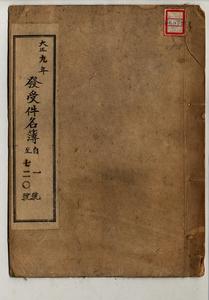 大正九年
發受件名簿
自一號
至七二〇號